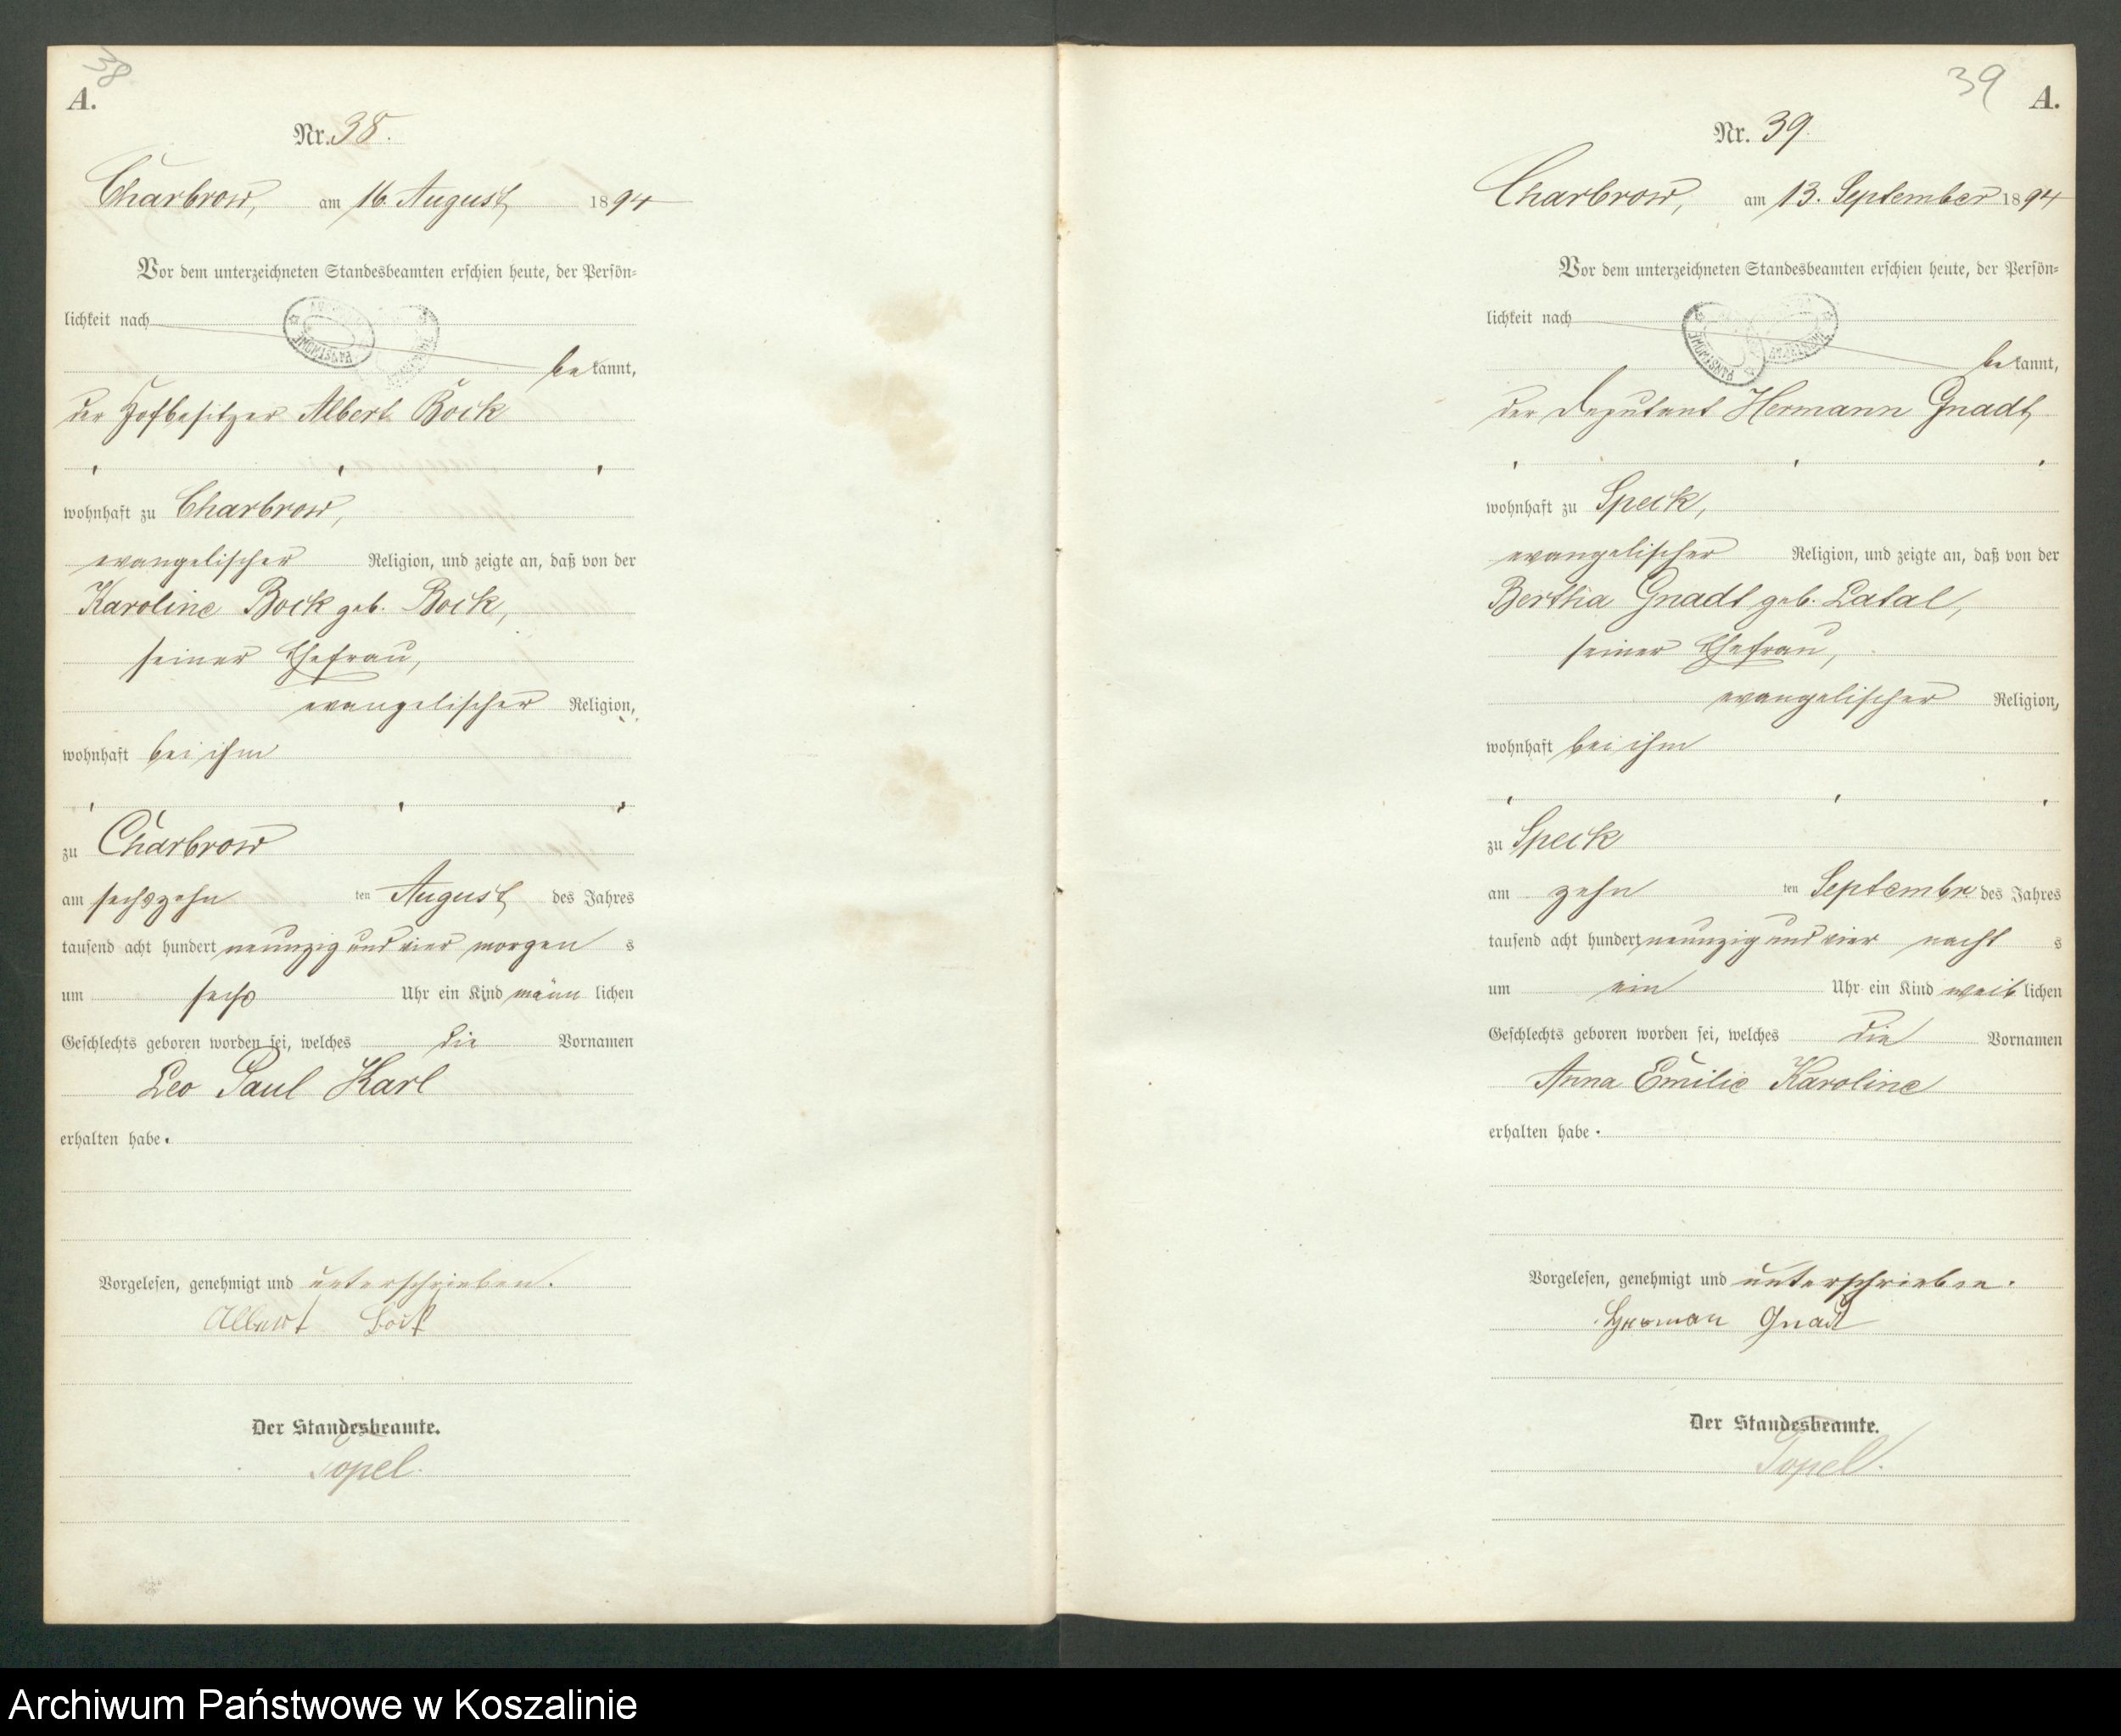 38
A.
Nr. 38.
Charbrow, am 16. August 1894
Vor dem unterzeichneten Standesbeamten erschien heute, der Persön-
lichkeit nach
bekannt,
der Hofbesitzer Albert Bock
wohnhaft zu Charbrow,
evangelischer Religion, und zeigte an, daß von der
Karoline Bock geb. Bock,
seiner Ehefrau,
evangelischer Religion,
wohnhaft bei ihm
zu Charbrow
am sechszehn ten August des Jahres
tausend acht hundert neunzig und vier morgens
um sechs Uhr ein Kind männlichen
Geschlechts geboren worden sei, welches die Vornamen
Leo Paul Karl
erhalten habe.
Vorgelesen, genehmigt und unterschrieben.
Albert Bock
Der Standesbeamte.
Topel.
39
A.
Nr. 39.
Charbrow, am 13. September 1894
Vor dem unterzeichneten Standesbeamten erschien heute, der Persön-
lichkeit nach
bekannt,
der Deputant Hermann Gnadt
wohnhaft zu Speck,
evangelischer Religion, und zeigte an, daß von der
Bertha Gnadt geb. Latal,
seiner Ehefrau,
evangelischer Religion,
wohnhaft bei ihm
zu Speck
am zehn ten Septembr des Jahres
tausend acht hundert neunzig und vier nachts
um ein Uhr ein Kind weiblichen
Geschlechts geboren worden sei, welches die Vornamen
Anna Emilie Karoline
erhalten habe.
Vorgelesen, genehmigt und unterschrieben.
Herman Gnadt
Der Standesbeamte.
Topel.
Archiwum Państwowe w Koszalinie